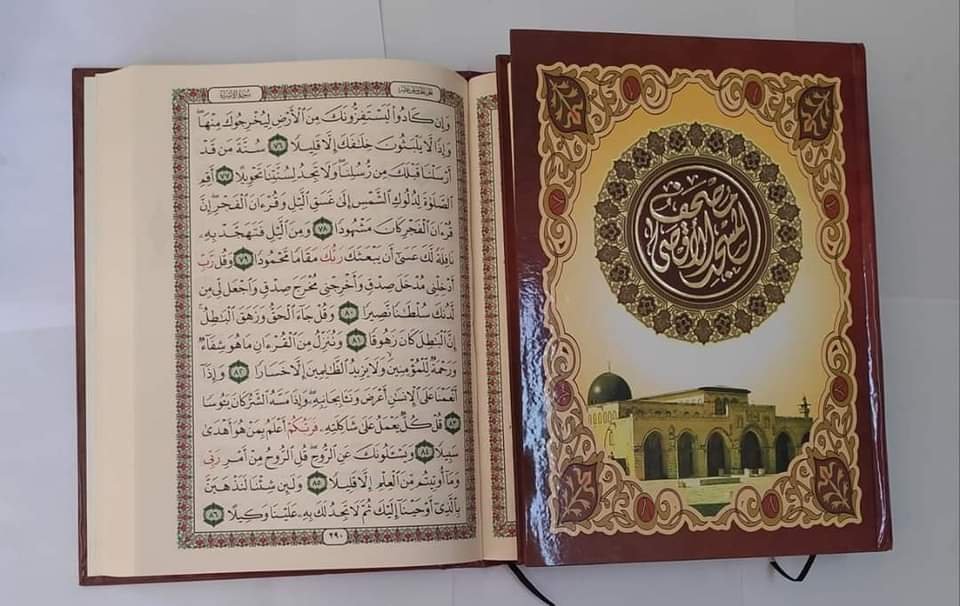 مصحف
المسجد الأقصى
سُورَةُ الإِسْرَاءِ
وَإِن كَادُوا۟ لَيَسْتَفِزُّونَكَ مِنَ ٱلْأَرْضِ لِيُخْرِجُوكَ مِنْهَا ۖ
وَإِذًا لَّا يَلْبَثُونَ خِلَٰفَكَ إِلَّا قَلِيلًا ٧٦ سُنَّةَ مَن قَدْ
أَرْسَلْنَا قَبْلَكَ مِن رُّسُلِنَا ۖ وَلَا تَجِدُ لِسُنَّتِنَا تَحْوِيلًا ٧٧ أَقِمِ
ٱلصَّلَوٰةَ لِدُلُوكِ ٱلشَّمْسِ إِلَىٰ غَسَقِ ٱلَّيْلِ وَقُرْءَانَ ٱلْفَجْرِ ۖ إِنَّ
قُرْءَانَ ٱلْفَجْرِ كَانَ مَشْهُودًا ٧٨ وَمِنَ ٱلَّيْلِ فَتَهَجَّدْ بِهِۦ
نَافِلَةً لَّكَ عَسَىٰٓ أَن يَبْعَثَكَ رَبُّكَ مَقَامًا مَّحْمُودًا ٧٩ وَقُل رَّبِّ
أَدْخِلْنِى مُدْخَلَ صِدْقٍ وَأَخْرِجْنِى مُخْرَجَ صِدْقٍ وَٱجْعَل لِّى مِن
لَّدُنكَ سُلْطَٰنًا نَّصِيرًا ٨٠ وَقُلْ جَآءَ ٱلْحَقُّ وَزَهَقَ ٱلْبَٰطِلُ ۚ
إِنَّ ٱلْبَٰطِلَ كَانَ زَهُوقًا ٨١ وَنُنَزِّلُ مِنَ ٱلْقُرْءَانِ مَا هُوَ شِفَآءٌ
وَرَحْمَةٌ لِّلْمُؤْمِنِينَ ۙ وَلَا يَزِيدُ ٱلظَّٰلِمِينَ إِلَّا خَسَارًا ٨٢ وَإِذَآ
أَنْعَمْنَا عَلَى ٱلْإِنسَٰنِ أَعْرَضَ وَنَـَٔا بِجَانِبِهِۦ ۖ وَإِذَا مَسَّهُ ٱلشَّرُّ كَانَ يَـُٔوسًا
٨٣ قُلْ كُلٌّ يَعْمَلُ عَلَىٰ شَاكِلَتِهِۦ فَرَبُّكُمْ أَعْلَمُ بِمَنْ هُوَ أَهْدَىٰ
سَبِيلًا ٨٤ وَيَسْـَٔلُونَكَ عَنِ ٱلرُّوحِ ۖ قُلِ ٱلرُّوحُ مِنْ أَمْرِ رَبِّى
وَمَآ أُوتِيتُم مِّنَ ٱلْعِلْمِ إِلَّا قَلِيلًا ٨٥ وَلَئِن شِئْنَا لَنَذْهَبَنَّ
بِٱلَّذِىٓ أَوْحَيْنَآ إِلَيْكَ ثُمَّ لَا تَجِدُ لَكَ بِهِۦ عَلَيْنَا وَكِيلًا ٨٦
٢٩٠